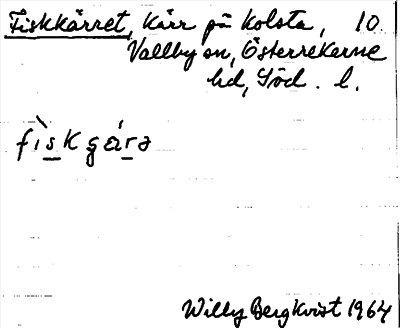 Fiskkärret, Kärr på Kolsta, 10
Vallby sn, Österrekarne
hd, Söd. l.
fìskgárɘ
Willy Bergkvist 1964